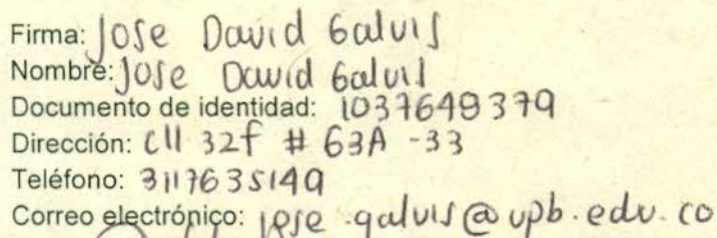 Firma: Jose David Galvis
Nombre: Jose David Galvis
Documento de identidad: 1037649379
Dirección: Cll 32f # 63A -33
Teléfono: 3117635149
Correo electrónico: jose.galvis@upb.edu.co